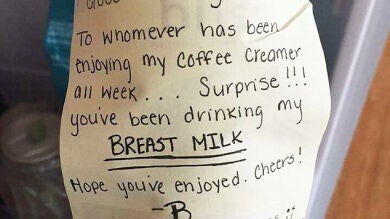 To whomever has been
enjoying my coffee creamer
all week . . . Surprise!!!
you've been drinking my
BREAST MILK
Hope you've enjoyed. Cheers!
-B